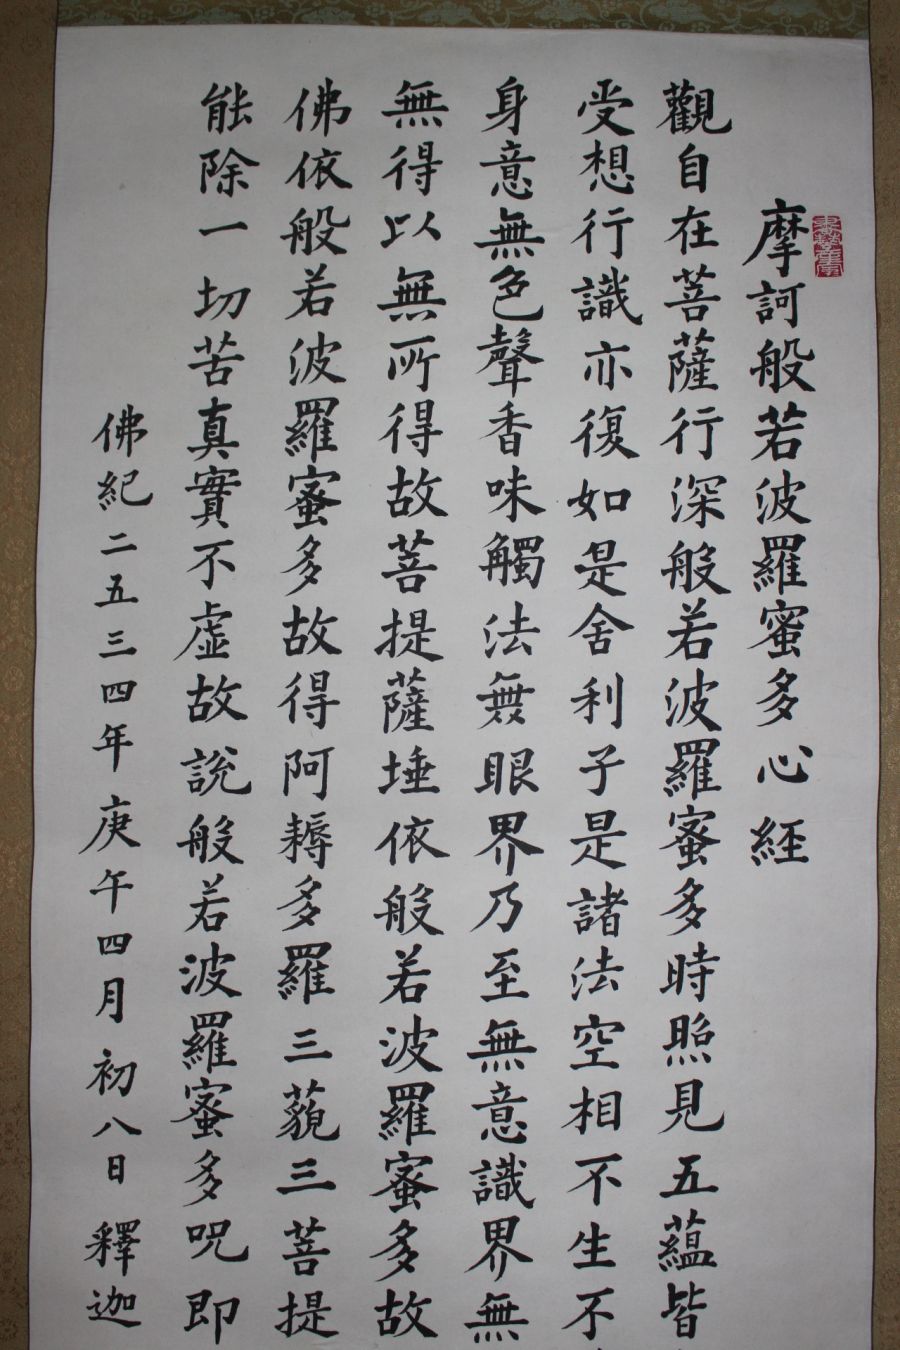 摩訶般若波羅蜜多心経
觀自在菩薩行深般若波羅蜜多時照見五蘊皆
受想行識亦復如是舍利子是諸法空相不生不
身意無色聲香味觸法無眼界乃至無意識界無
無得以無所得故菩提薩埵依般若波羅蜜多故
佛依般若波羅蜜多故得阿耨多羅三藐三菩提
能除一切苦真實不虛故說般若波羅蜜多呪即
佛紀二五三四年庚午四月初八日釋迦